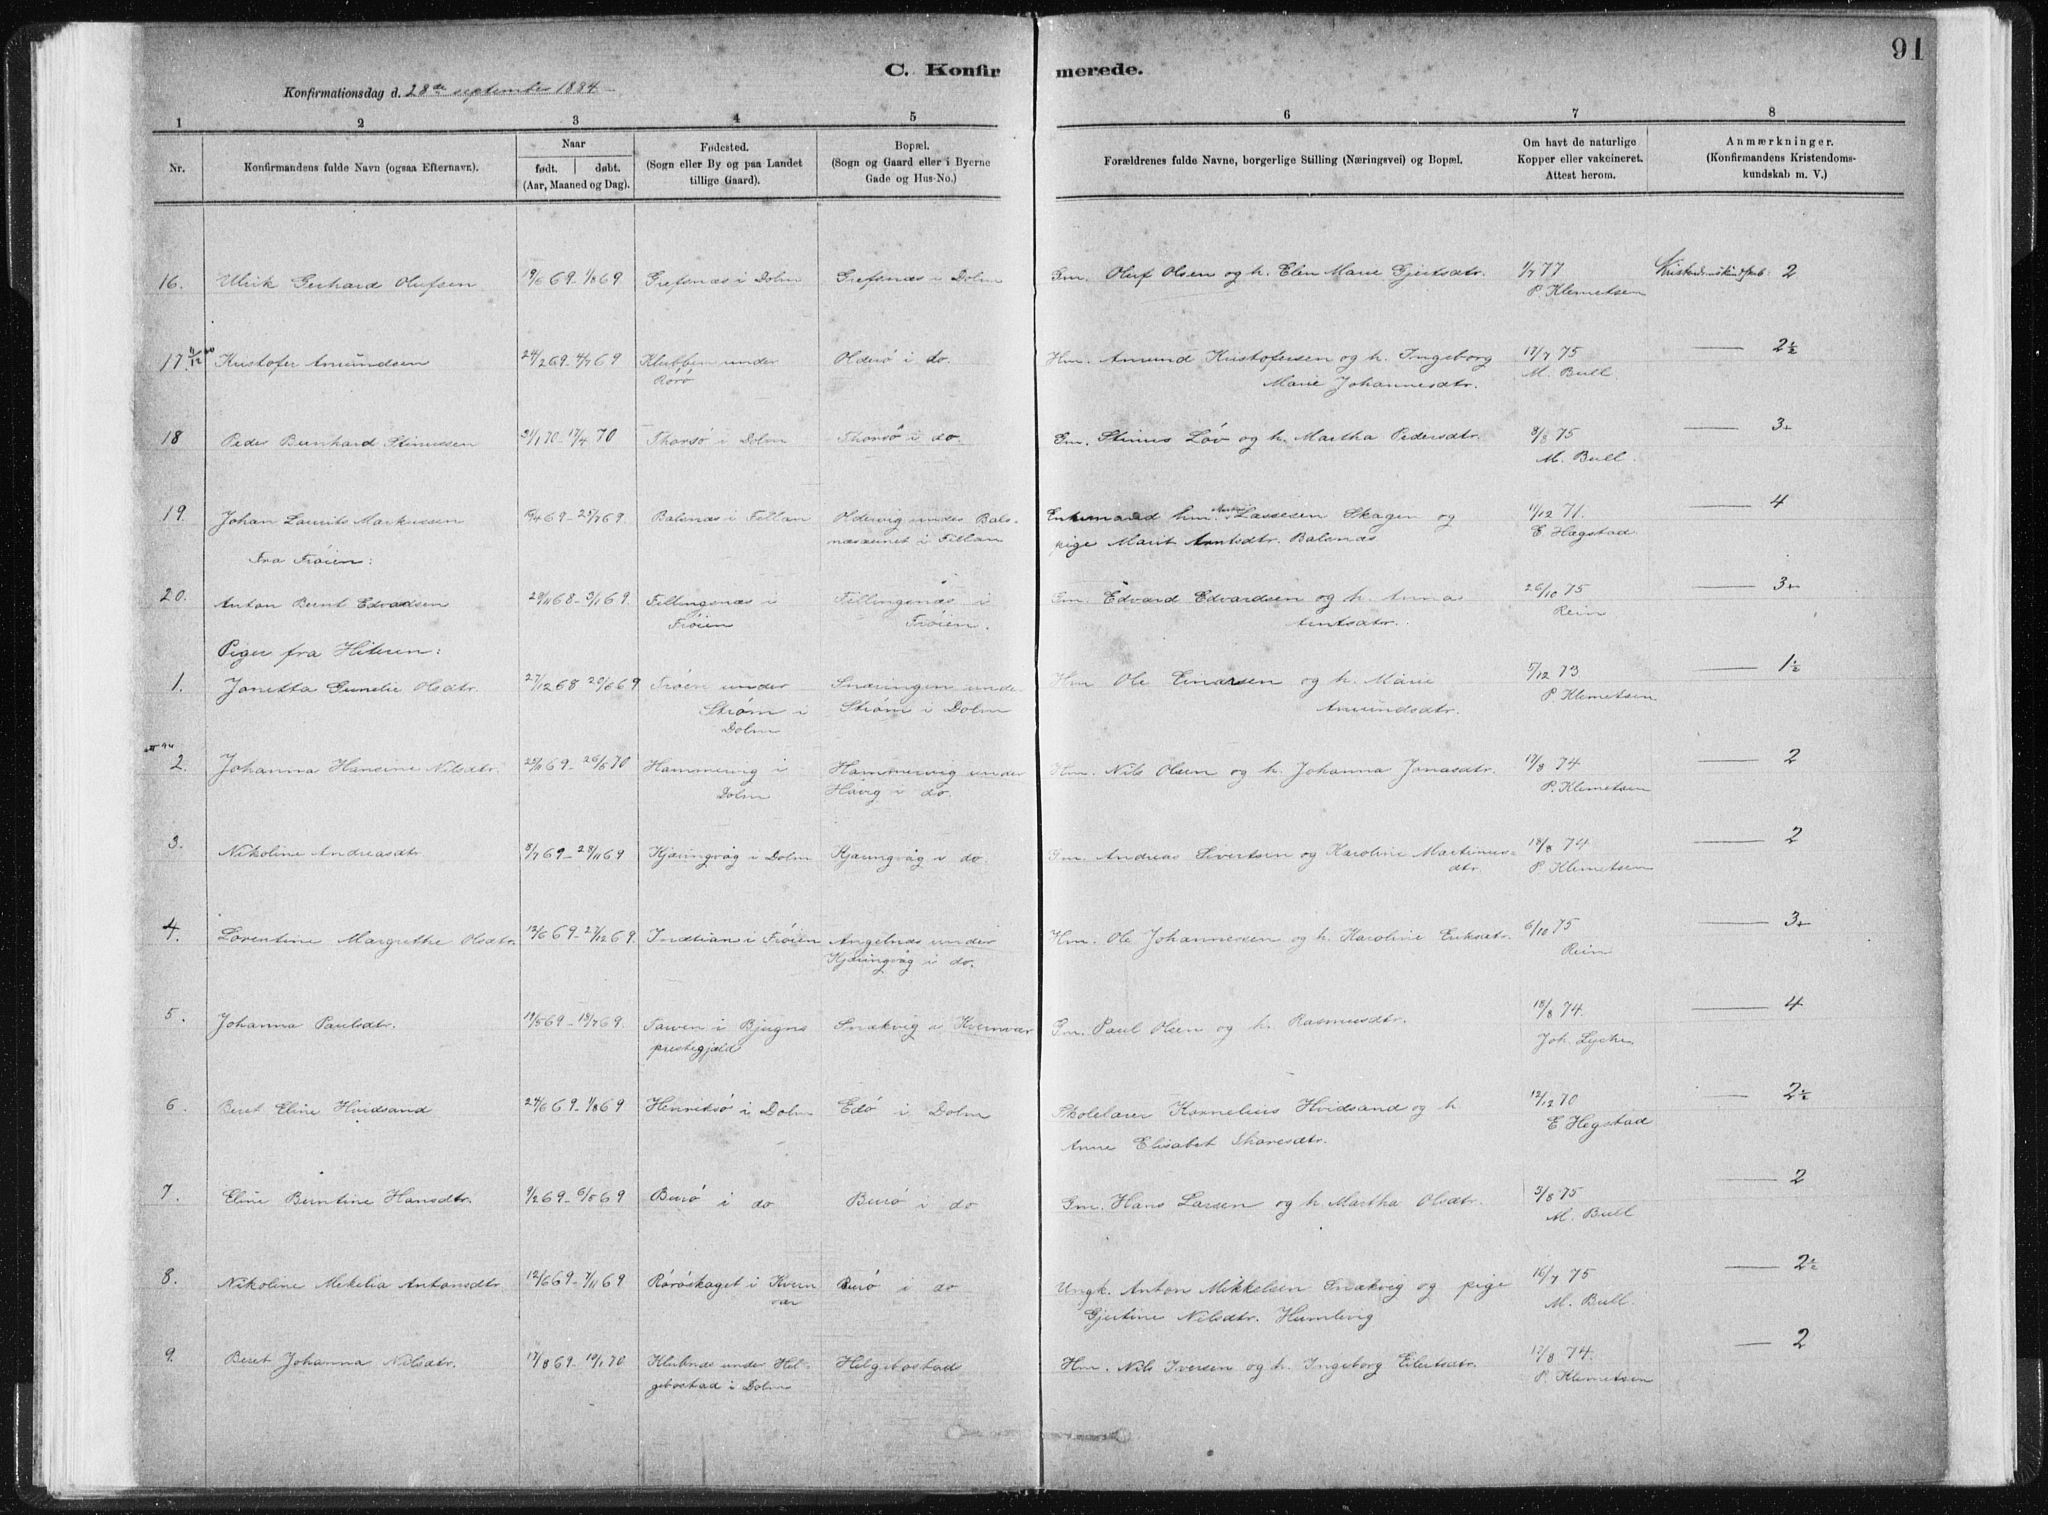 91
C. Konfirmerede.
Konfirmationsdag d. 28de september 1884
1 2 3 4 5 6 7 8
Nr.
Konfirmandens fulde Navn (ogsaa Efternavn).
Naar
født. døbt.
(Aar, Maaned og Dag).
Fødested.
(Sogn eller By og paa Landet
tillige Gaard).
Bopæl.
(Sogn og Gaard eller i Byerne
Gade og Hus-No.)
Forældrenes fulde Navne, borgerlige Stilling (Næringsvei) og Bopæl.
Om havt de naturlige
Kopper eller vakcineret.
Attest herom.
Anmærkninger.
(Konfirmandens Kristendoms-
kundskab m. V.)
16. Ulrik Gerhard Olufsen 19/6 69 - 1/8 69 Grefsnæs i Dolm Grefsnæs i Dolm Gm. Oluf Olsen og h. Elen Marie Gjertsdtr. 1/7 77 2
P. Klemetsen
17. Kristofer Amundsen 24/2 69 - 4/7 69 Klubben under Olderø i do. Hm. Amund Kristofersen og h. Ingeborg 17/7 75 — 2½
Rørø Marie Johannesdtr. M. Bull
18 Peder Bernhard Stinussen 31/1 70 - 17/4 70 Thorsø i Dolm Thorsø i do. Em. Stinus Löv og h. Martha Pedersdtr. 3/8 75 — 3+
M. Bull.
19. Johan Laurits Markussen 69 - 25/7 69 Balsnæs i Fillan Oldervig under Bals- Enkemand hm. Lassesen Skagen og 11/12 71. — 4
næsaunet i Fillan pige Marit Arntsdtr. Balsnæs E Hægstad
Fra Frøien:
20. Anton Bernt Edvardsen 29/11 68 - 3/1 69. Fillingsnæs i Fillingsnæs i Gm. Edvard Edvardsen og h. Anna 26/10 75 — 3+
Frøien Frøien. Arntsdtr. Rein
Piger fra Hiteren:
1. Jonetta Gunelie Olsdtr. 27/12 68 20/6 69 Trøen under Snæringen unde- Hm Ole Einarsen og h. Marie 5/12 73 — 1½
Strøm i Strøm i Dolm Amundsdtr. P. Klemetsen
Dolm
2. Johanna Hansine Nilsdtr. 25/11 69 - 26/6 70 Hammervig i Hammervig under Hm. Nils Olsen og h. Johanna Jonasdtr. 17/8 74 — 2
Dolm Havig i do. P. Klemetsen
3. Nikoline Andreasdtr 8/7 69 - 28/11 69 Kjæringvåg i Dolm Kjæringvåg i do. Gm. Andreas Sivertsen og Karoline Martinus- 18/8 74 — 2
dtr. P Klemetsen
4. Lorentine Margrethe Olsdtr. 13/6 69 - 27/12 69. Inntian i Frøien Angelnæs under Hm. Ole Johannessen og h. Karoline Eriksdtr. 6/10 75 — 3+
Kjæringvåg i do. Rein
5. Johanna Paulsdtr. 19/5 69 - 18/7 69. Tarven i Bjugns Snækvig i Kvernvær Gm. Paul Olsen og h. Rasmusdtr. 18/8 74. — 4
prestegjæld Joh. Lyche
6. Beret Eline Hvidsand 24/6 69 - 1/8 69 Henriksø i Dolm Edø i Dolm Skolelærer Kornelius Hvidsand og h 12/12 70 — 2½
Anne Elisabet Skaresdtr. E Hegstad
7. Eline Berntine Hansdtr. 9/2 69 - 6/8 69 Burø i do Burø i do Gm. Hans Larsen og h. Martha Olsdtr. 3/8 75 — 2
M. Bull
8. Nikoline Mekelia Antonsdtr 12/6 69 - 7/11 69 Rørøskaget i Kvern Burø i do Ungk. Anton Mikkelsen Snækvig og pige 16/7 75 — 2½
vær Gjertine Nilsdtr. Humlevig M. Bull.
9. Beret Johanna Nilsdtr. 17/8 69 - 19/1 70 Klubnæs under Hel- Helgebostads Hm. Nils Iversen og h. Ingeborg Eilertsdtr. 17/8 74. — 2
gebostad i Dolm P. Klemetsen